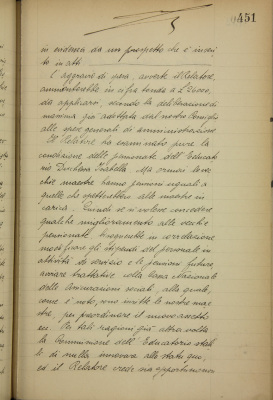 451
in evidenza da un prospetto che è inseri-
to in atti.
L'aggravio di spesa, avverte il Relatore,
ammonterebbe in cifra tonda a L.
da applicarsi, secondo la deliberazione di
massima già adottata dal nostro Consiglio
alle spese generali di amministrazione.
Il Relatore ha esaminato pure la
condizione delle pensionate dell'Educato-
rio Duchessa Isabella. Ma ormai le vec-
chie maestre hanno pensioni eguali a
quelle che spetterebbero alle maestre in
carica. Quindi se si volesse concedere
qualche miglioramento alle vecchie
pensionate, bisognerebbe in correlazione
modificare gli stipendi del personale in
attività di servizio e le pensioni future,
avviare trattative colla Cassa Nazionale
delle Assicurazioni sociali, alla quale,
come è noto, sono iscritte le nostre mae-
stre, per riordinare il nuovo assetto
ecc. Per tali ragioni già altra volta
la Commissione dell'Educatorio stabi-
lì di nulla innovare allo stato quo,
ed il Relatore crede sia opportuno non